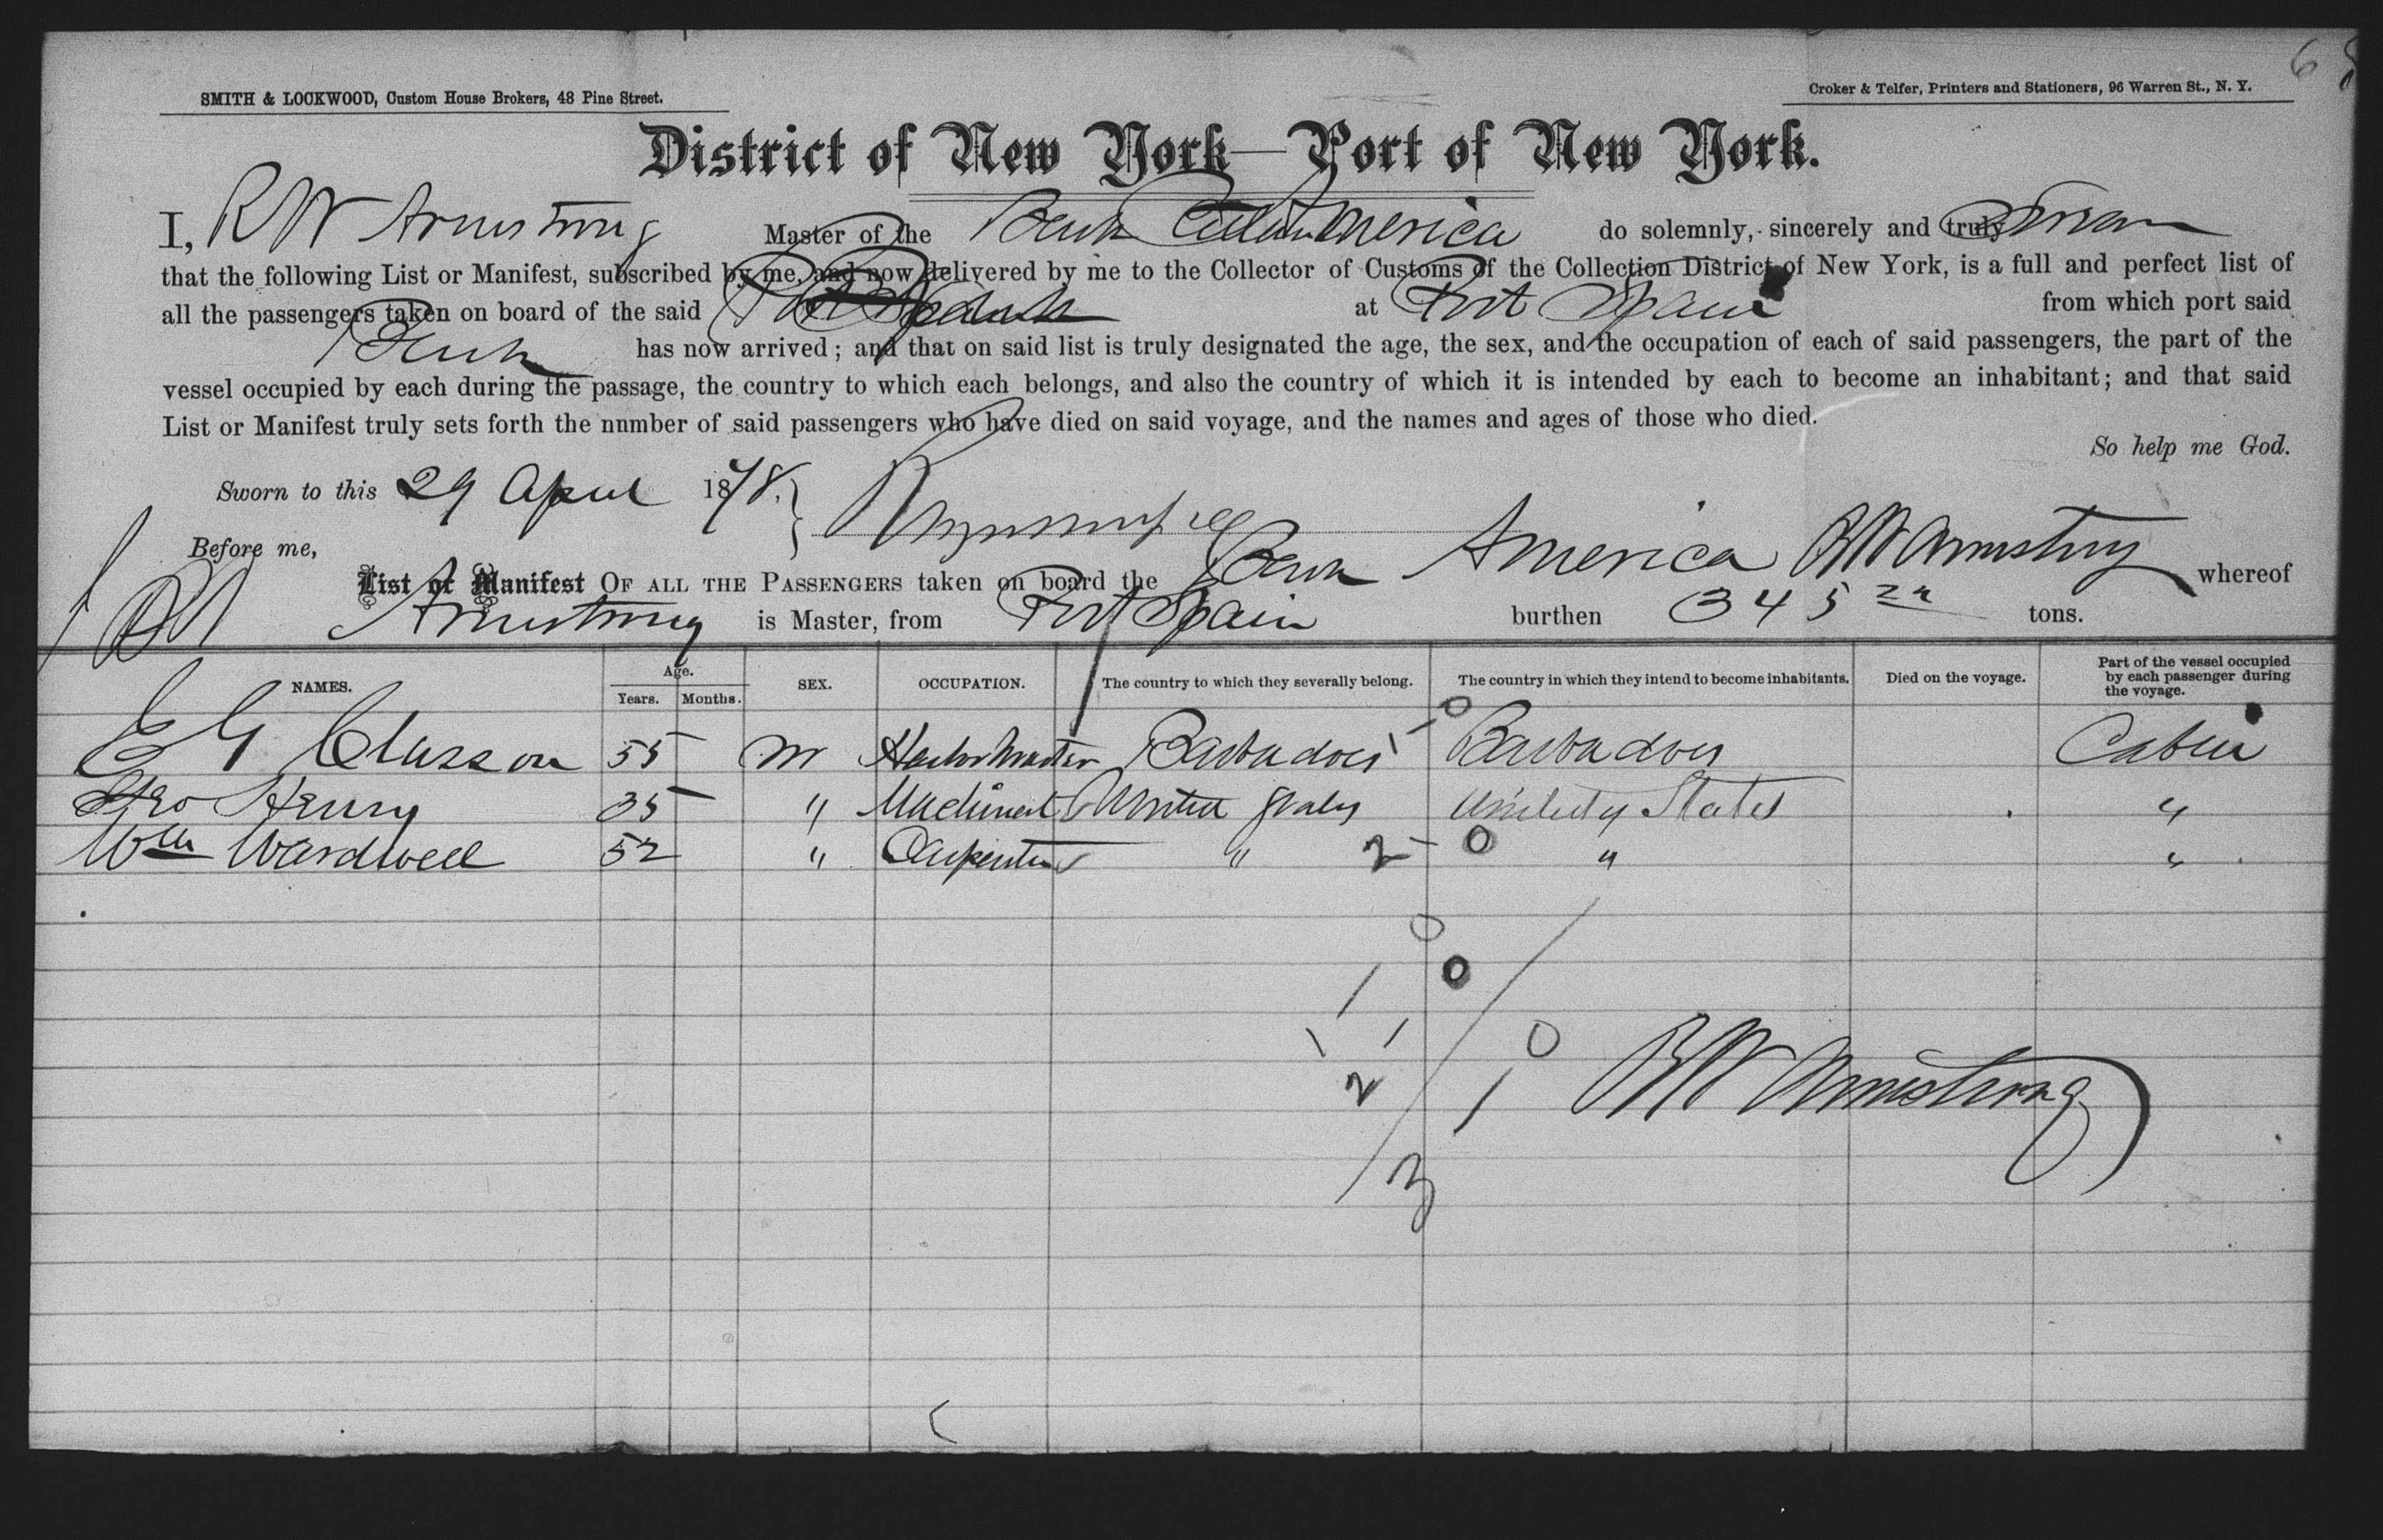 68
SMITH & LOCKWOOD, Custom House Brokers, 48 Pine Street.
Croker & Telfer, Printers and Stationers, 96 Warren St., N. Y.
District of New York—Port of New York.
I, R W Armstrong Master of the Bark America do solemnly, sincerely and truly Swear
that the following List or Manifest, subscribed by me, and now delivered by me to the Collector of Customs of the Collection District of New York, is a full and perfect list of
all the passengers taken on board of the said Bark at Port Spain from which port said
Bark has now arrived; and that on said list is truly designated the age, the sex, and the occupation of each of said passengers, the part of the
vessel occupied by each during the passage, the country to which each belongs, and also the country of which it is intended by each to become an inhabitant; and that said
List or Manifest truly sets forth the nnmber of said passengers who have died on said voyage, and the names and ages of those who died.
So help me God.
Sworn to this 29 April 1878.
Before me,
List or Manifest OF ALL THE PASSENGERS taken on board the Bark America R W Armstrong whereof
R W Armstrong is Master, from Port Spain burthen 345 tons.
NAMES. Age. Years. Months. SEX. OCCUPATION. The country to which they severally belong. The country in which they intend to become inhabitants. Died on the voyage. Part of the vessel occupied by each passenger during the voyage.
E G Classon 55 M Harbor Master Barbadoes 1-0 Barbadoes Cabin
Geo Henry 35 " Machinest United States United States "
Wm Wardwell 52 " Carpenter " 2-0 " "
0
1 0
1 1 0
2 1
3
R W Armstrong